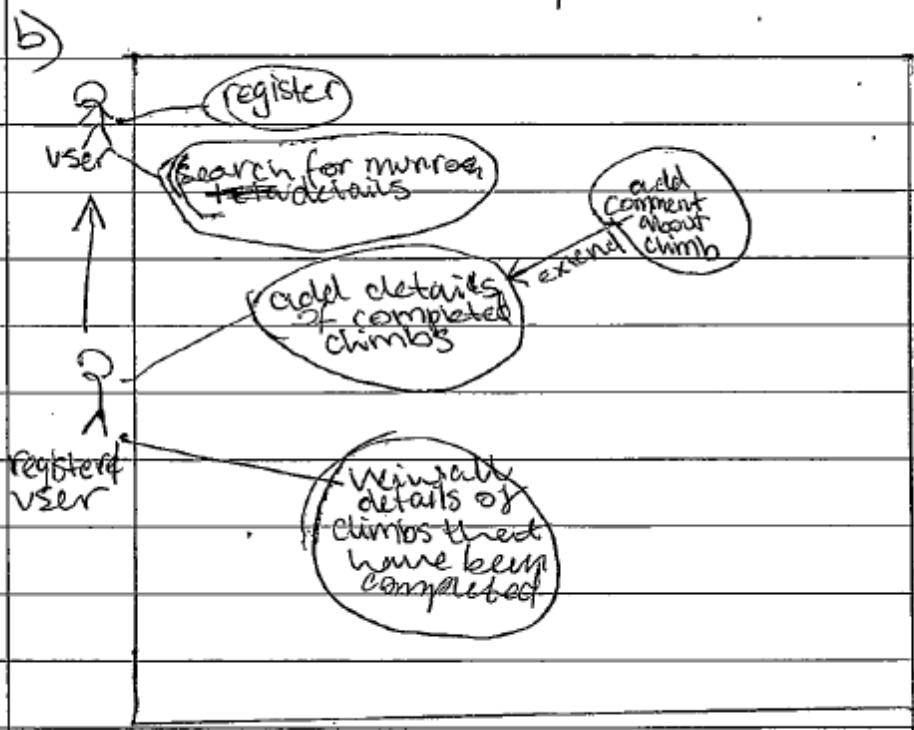 b)
register
user
search for munroe
details
add
comment
about
climb
extend
add details
of completed
climbs
registered
user
view all
details of
climbs that
have been
completed